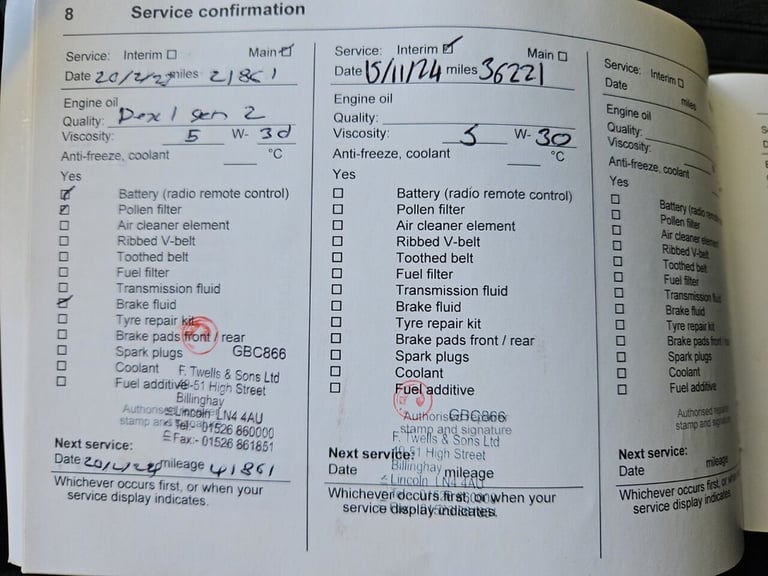 8 Service confirmation
Service: Interim ☐ Main ☑
Date 20/2/ miles 21861
Engine oil
Quality: Dex 1 gen 2
Viscosity: 5 W- 30
Anti-freeze, coolant ___ °C
Yes
☑ Battery (radio remote control)
☑ Pollen filter
☐ Air cleaner element
☐ Ribbed V-belt
☐ Toothed belt
☐ Fuel filter
☐ Transmission fluid
☑ Brake fluid
☐ Tyre repair kit
☐ Brake pads front / rear
☐ Spark plugs
☐ Coolant
☐ Fuel additive
GBC866
F. Twells & Sons Ltd
49-51 High Street
Billinghay
Lincoln LN4 4AU
Tel:- 01526 860000
Fax:- 01526 861851
Authorised
stamp and
Next service:
Date mileage 41861
Whichever occurs first, or when your
service display indicates.
Service: Interim ☑ Main ☐
Date 15/11/24 miles 36221
Engine oil
Quality:
Viscosity: 5 W- 30
Anti-freeze, coolant ___ °C
Yes
☐ Battery (radio remote control)
☐ Pollen filter
☐ Air cleaner element
☐ Ribbed V-belt
☐ Toothed belt
☐ Fuel filter
☐ Transmission fluid
☐ Brake fluid
☐ Tyre repair kit
☐ Brake pads front / rear
☐ Spark plugs
☐ Coolant
☐ Fuel additive
GBC866
Authorised
stamp and signature
F. Twells & Sons Ltd
49-51 High Street
Billinghay
Lincoln LN4 4AU
Next service:
Date mileage
Whichever occurs first, or when your
service display indicates.
Service: Interim ☐
Date miles
Engine oil
Quality:
Viscosity:
Anti-freeze, coolant
Yes
☐ Battery (radio
☐ Pollen filter
☐ Air cleaner element
☐ Ribbed V-belt
☐ Toothed belt
☐ Fuel filter
☐ Transmission fluid
☐ Brake fluid
☐ Tyre repair kit
☐ Brake pads front /
☐ Spark plugs
☐ Coolant
☐ Fuel additive
Authorised
stamp and signature
Next service:
Date mileage
Whichever occurs first, or when
service display indicates.